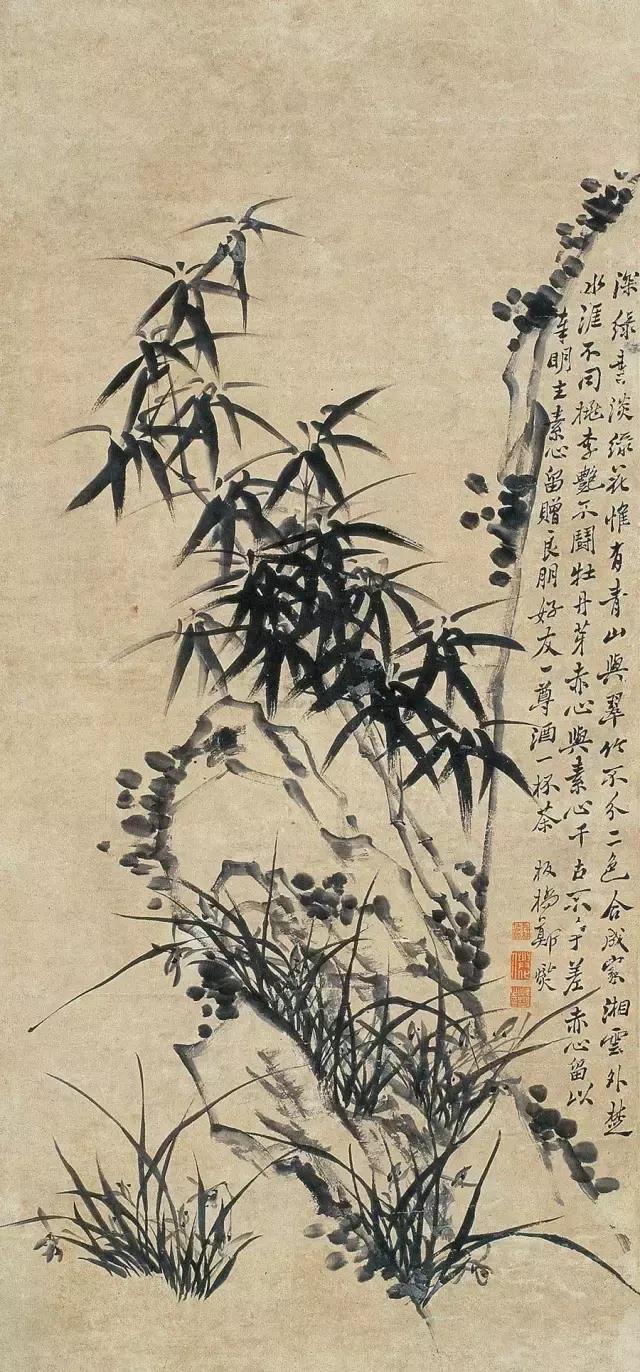 深緑葉淡緑花惟有青山與翠竹不分二色合成家湘雲外楚
水涯不同桃李艷不鬪牡丹芽赤心與素心千古不争差赤心留以
奉明主素心留贈良朋好友一尊酒一杯茶 板橋鄭燮